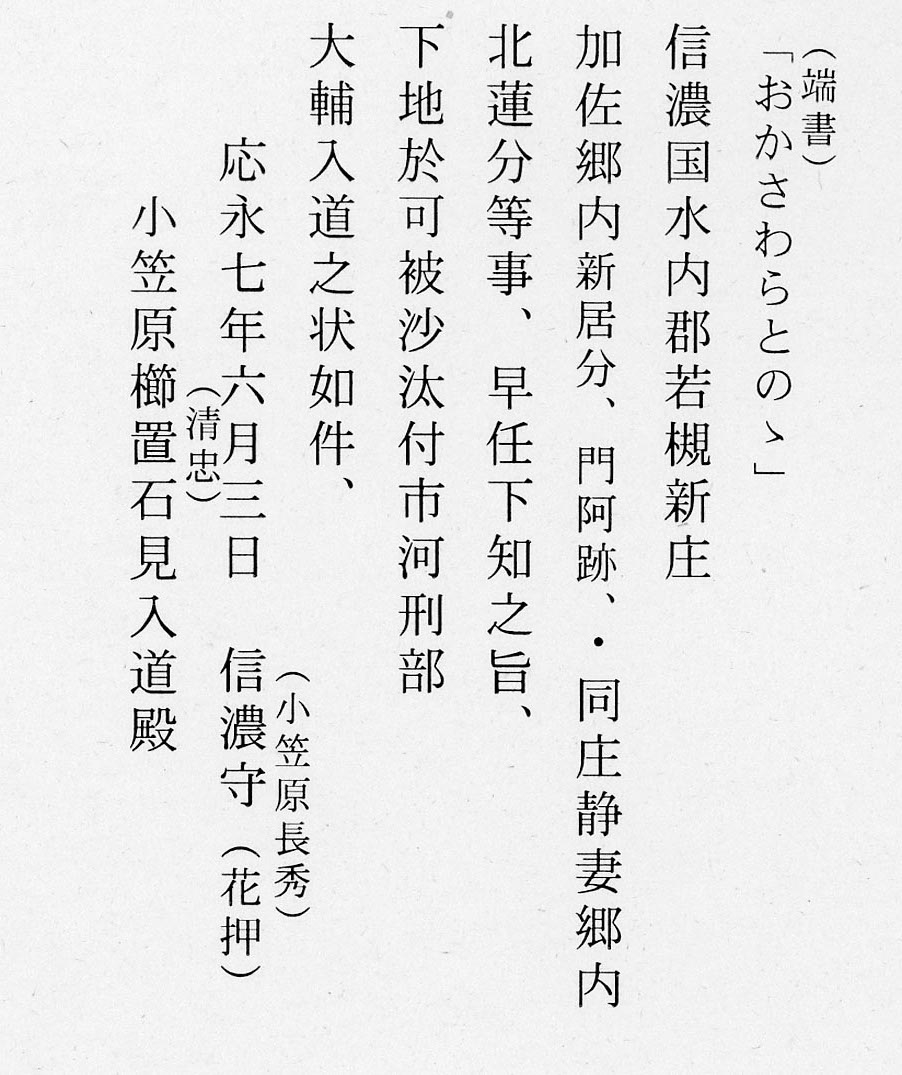 （端書）
「おかさわらとのゝ」
信濃国水内郡若槻新庄
加佐郷内新居分、門阿跡、・同庄静妻郷内
北蓮分等事、早任下知之旨、
下地於可被沙汰付市河刑部
大輔入道之状如件、
（小笠原長秀）
応永七年六月三日　信濃守（花押）
（清忠）
小笠原櫛置石見入道殿